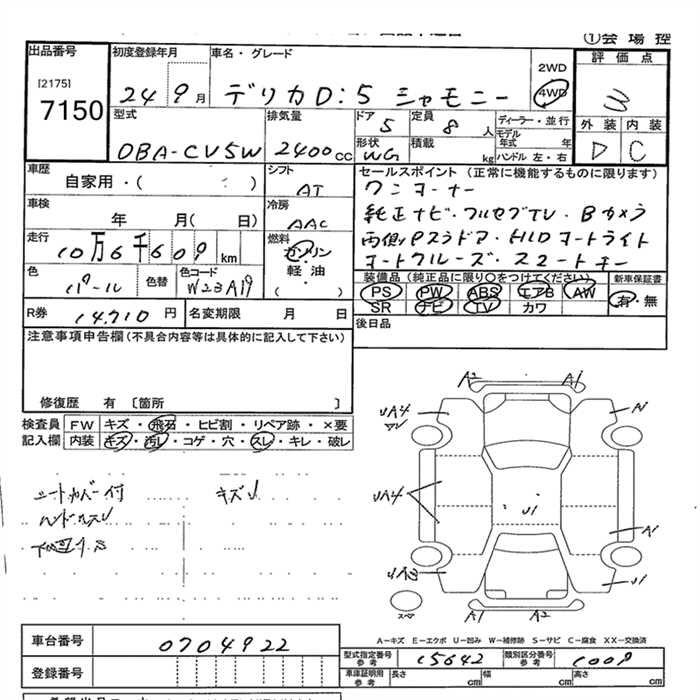 ①会 場 控
出品番号
[2175]
7150
初度登録年月
24 9月
車名・グレード
デリカD:5 シャモニー
2WD
4WD
評 価 点
3
外 装 内 装
D C
型式
DBA-CV5W
排気量
2400cc
ドア
5
定員
8人
形状
WG
積載
kg
ディーラー・並行
モデル
年式 年
ハンドル 左・右
車歴
自家用・( )
シフト
AT
車検
年 月( 日)
冷房
AAC
走行
10万6千609km
燃料
ガソリン
・
軽油
・
( )
色
パール
色替
色コード
W23A19
R券
14,710円
名変期限 月 日
セールスポイント(正常に機能するものに限ります)
ワンオーナー
純正ナビ・フルセグTV・Bカメラ
両側Pスラドア・HIDオートライト
オートクルーズ・スマートキー
装備品(純正品に限り○をつけてください)
PS PW ABS エアB AW
SR ナビ TV カワ
新車保証書
有・無
後日品
注意事項申告欄(不具合内容等は具体的に記入して下さい)
修復歴 有 〔箇所 〕
検査員
記入欄
FW キズ・飛石・ヒビ割・リペア跡・×要
内装 キズ・汚レ・コゲ・穴・スレ・キレ・破レ
シートカバー付 キズU
ハンドルスレ
A2 A1
UA4
A1
UA4
U1
A1
UA3
U1
スペア
A1 A2
A−キズ E−エクボ U−凹み W−補修跡 S−サビ C−腐食 XX−交換済
車台番号
0704922
登録番号
型式指定番号
参考
15642
類別区分番号
参考
1008
車庫証明用
参考
長さ cm 幅 cm 高さ cm